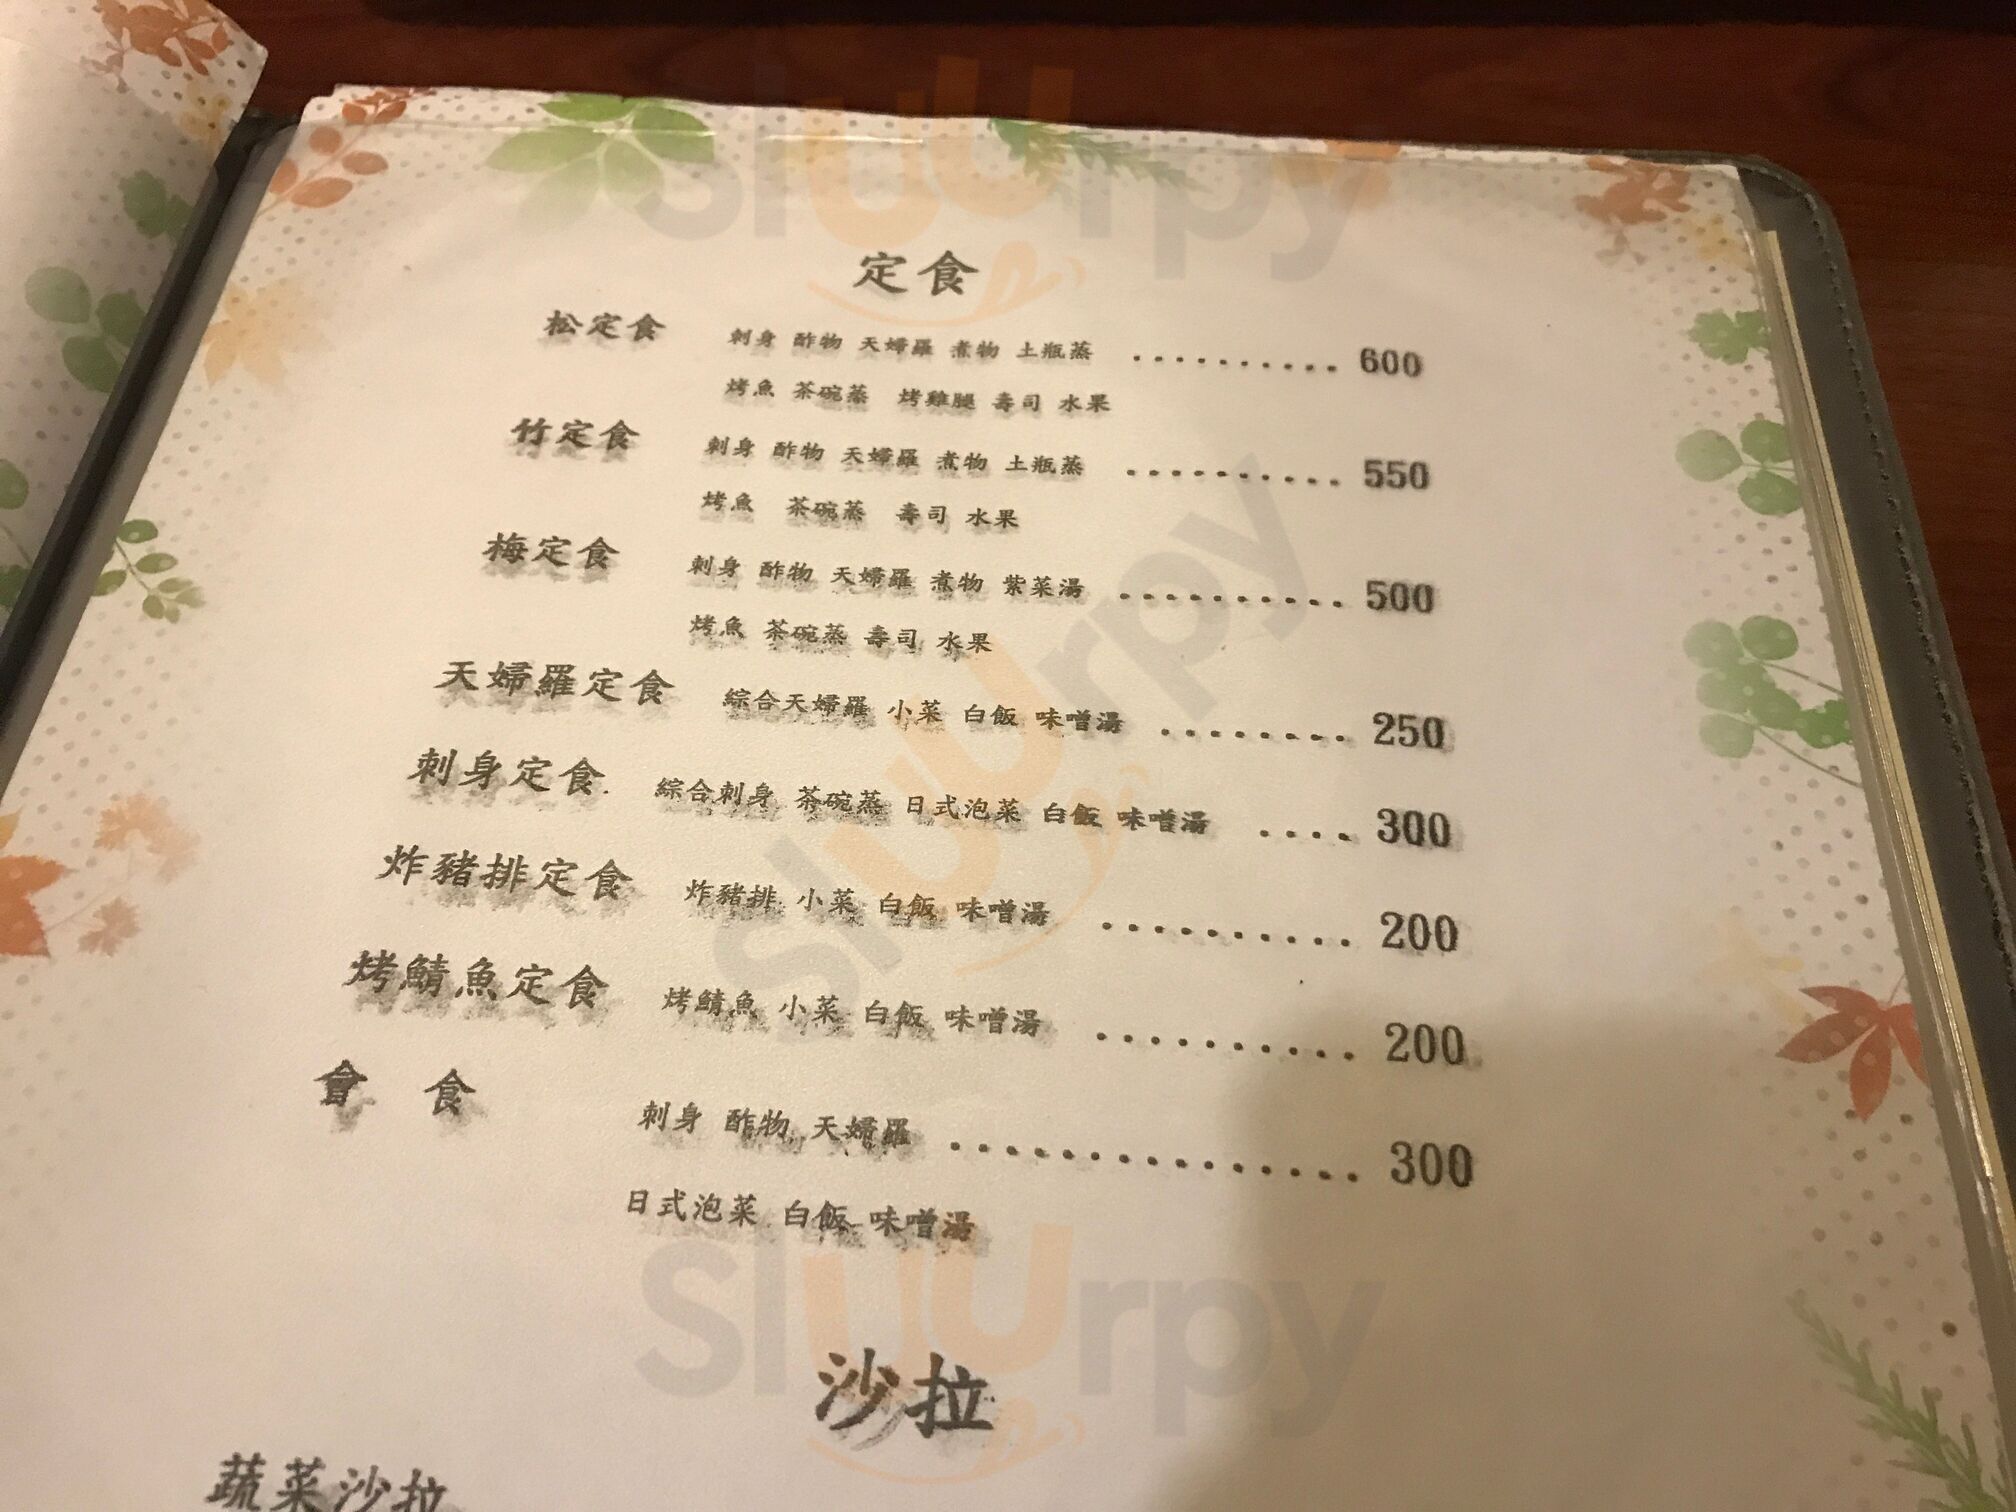 定食
松定食 刺身 酢物 天婦羅 煮物 土瓶蒸 .......... 600
烤魚 茶碗蒸 烤雞腿 壽司 水果
竹定食 刺身 酢物 天婦羅 煮物 土瓶蒸 .......... 550
烤魚 茶碗蒸 壽司 水果
梅定食 刺身 酢物 天婦羅 煮物 紫菜湯 .......... 500
烤魚 茶碗蒸 壽司 水果
天婦羅定食 綜合天婦羅 小菜 白飯 味噌湯 ........ 250
刺身定食. 綜合刺身 茶碗蒸 日式泡菜 白飯 味噌湯 .... 300
炸豬排定食 炸豬排 小菜 白飯 味噌湯 .......... 200
烤鯖魚定食 烤鯖魚 小菜 白飯 味噌湯 .......... 200
會 食 刺身 酢物 天婦羅 ............... 300
日式泡菜 白飯 味噌湯
沙拉
蔬菜沙拉
sluurpy
sluurpy
sluurpy